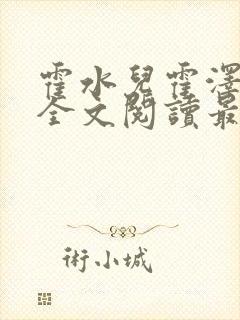 霍水兒霍澤
全文閱讀最
術小城